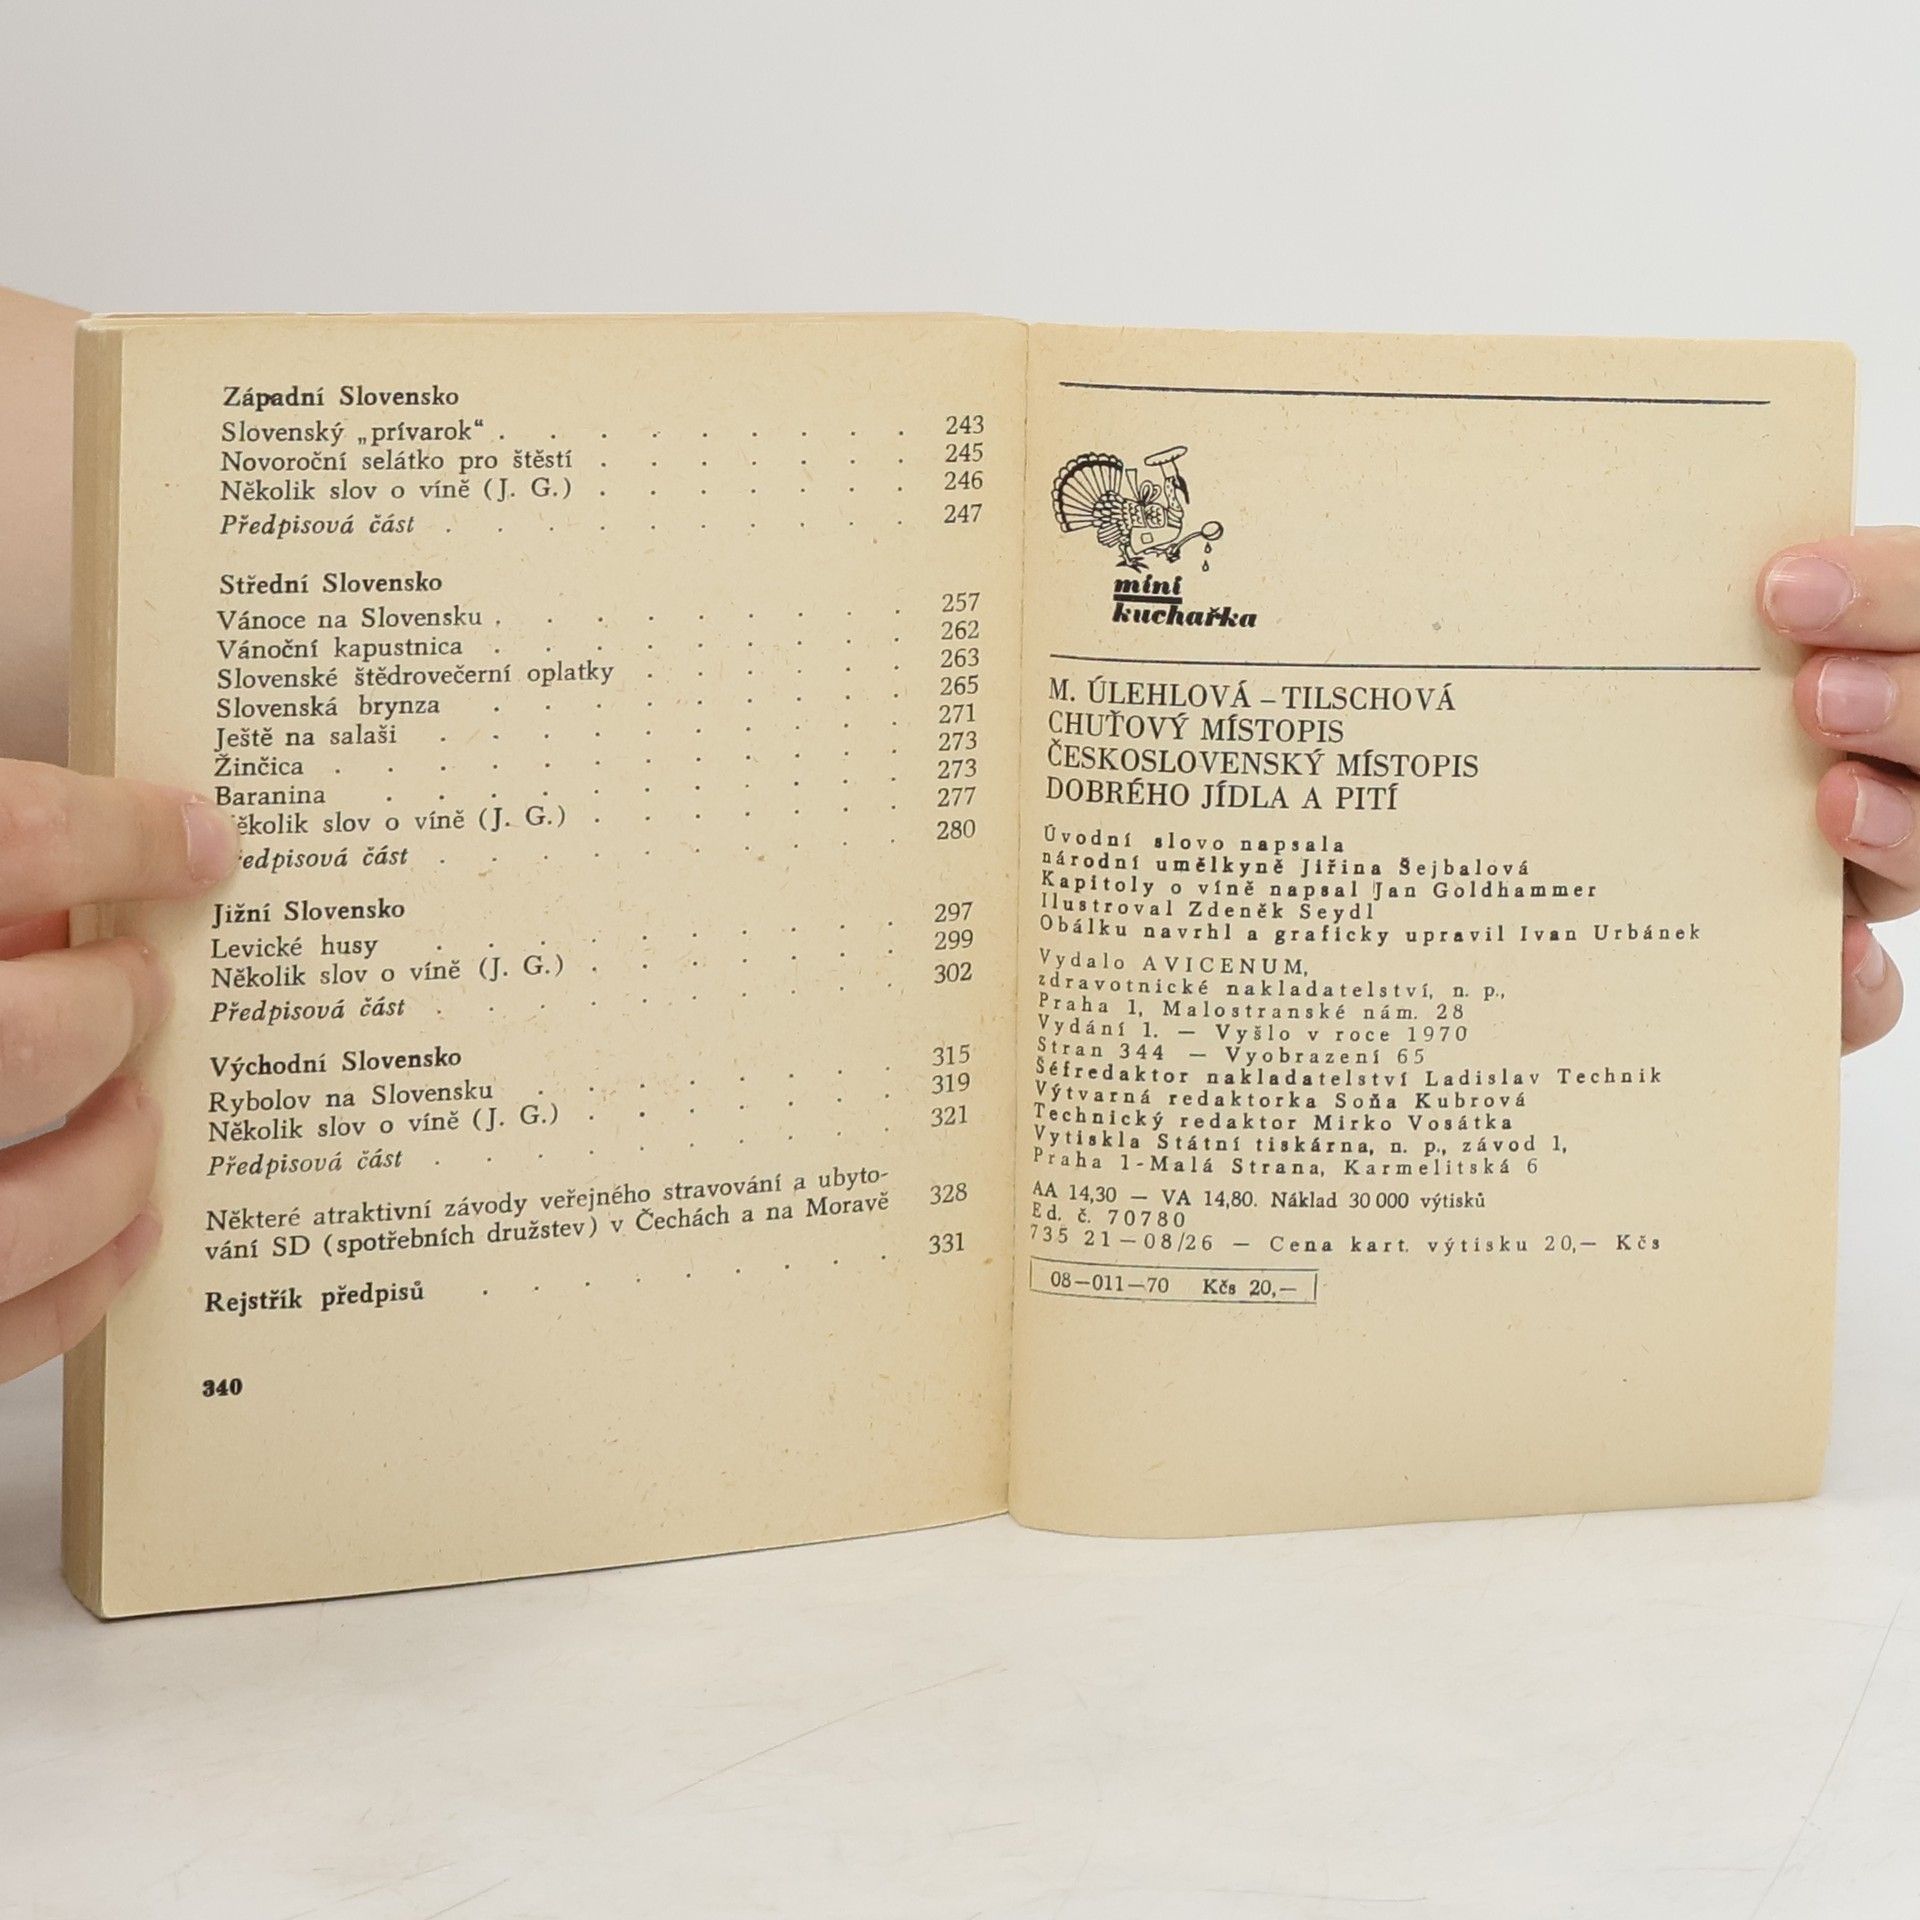 Západní Slovensko
Slovenský „prívarok“ . . . . . . . . . 243
Novoroční selátko pro štěstí . . . . . . . 245
Několik slov o víně (J. G.) . . . . . . . 246
Předpisová část . . . . . . . . . . 247
Střední Slovensko
Vánoce na Slovensku . . . . . . . . . 257
Vánoční kapustnica . . . . . . . . . 262
Slovenské štědrovečerní oplatky . . . . . . 263
Slovenská brynza . . . . . . . . . 265
Ještě na salaši . . . . . . . . . . 271
Žinčica . . . . . . . . . . . . 273
Baranina . . . . . . . . . . . 273
ěkolik slov o víně (J. G.) . . . . . . . 277
edpisová část . . . . . . . . . . 280
Jižní Slovensko
Levické husy . . . . . . . . . . 297
Několik slov o víně (J. G.) . . . . . . . 299
Předpisová část . . . . . . . . . . 302
Východní Slovensko
Rybolov na Slovensku . . . . . . . . 315
Několik slov o víně (J. G.) . . . . . . . 319
Předpisová část . . . . . . . . . . 321
Některé atraktivní závody veřejného stravování a ubyto-
vání SD (spotřebních družstev) v Čechách a na Moravě 328
Rejstřík předpisů . . . . . . . . . 331
340
mini
kuchařka
M. ÚLEHLOVÁ – TILSCHOVÁ
CHUŤOVÝ MÍSTOPIS
ČESKOSLOVENSKÝ MÍSTOPIS
DOBRÉHO JÍDLA A PITÍ
Úvodní slovo napsala
národní umělkyně Jiřina Šejbalová
Kapitoly o víně napsal Jan Goldhammer
Ilustroval Zdeněk Seydl
Obálku navrhl a graficky upravil Ivan Urbánek
Vydalo AVICENUM,
zdravotnické nakladatelství, n. p.,
Praha 1, Malostranské nám. 28
Vydání 1. — Vyšlo v roce 1970
Stran 344 — Vyobrazení 65
Šéfredaktor nakladatelství Ladislav Technik
Výtvarná redaktorka Soňa Kubrová
Technický redaktor Mirko Vosátka
Vytiskla Státní tiskárna, n. p., závod 1,
Praha 1-Malá Strana, Karmelitská 6
AA 14,30 — VA 14,80. Náklad 30 000 výtisků
Ed. č. 70780
735 21—08/26 — Cena kart. výtisku 20,— Kčs
08—011—70 Kčs 20,—